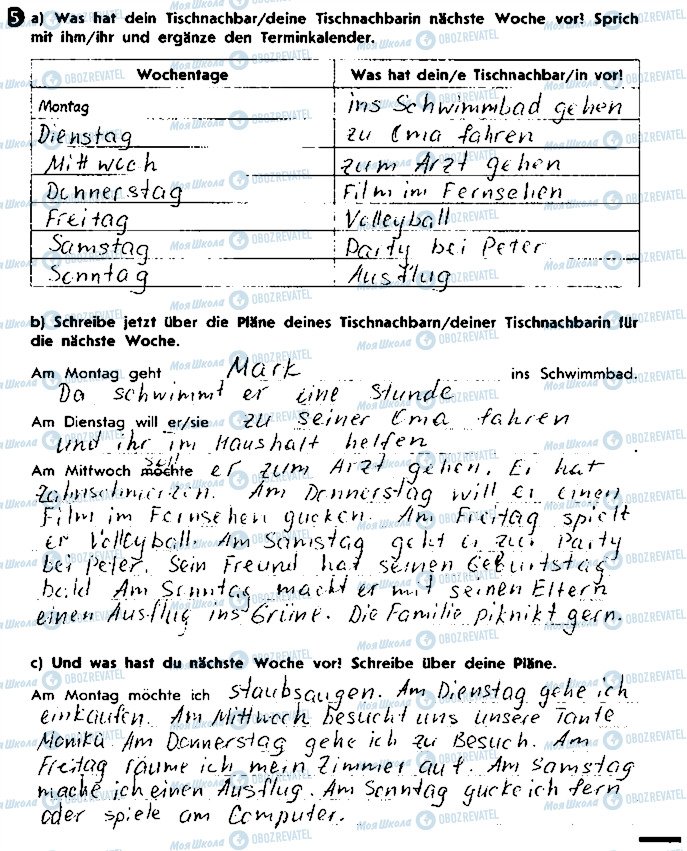 5 a) Was hat dein Tischnachbar/deine Tischnachbarin nächste Woche vor! Sprich
mit ihm/ihr und ergänze den Terminkalender.
Wochentage Was hat dein/e Tischnachbar/in vor!
Montag ins Schwimmbad gehen
Dienstag zu Oma fahren
Mittwoch zum Arzt gehen
Donnerstag Film im Fernsehen
Freitag Volleyball
Samstag Party bei Peter
Sonntag Ausflug
b) Schreibe jetzt über die Pläne deines Tischnachbarn/deiner Tischnachbarin für
die nächste Woche.
Am Montag geht Mark ins Schwimmbad.
Da schwimmt er eine Stunde
Am Dienstag will er/sie zu seiner Oma fahren
und ihr im Haushalt helfen
soll
Am Mittwoch möchte er zum Arzt gehen. Er hat
Zahnschmerzen. Am Donnerstag will er einen
Film im Fernsehen gucken. Am Freitag spielt
er Volleyball. Am Samstag geht er zur Party
bei Peter. Sein Freund hat seinen Geburtstag
bald Am Sonntag macht er mit seinen Eltern
einen Ausflug ins Grüne. Die Familie piknikt gern.
c) Und was hast du nächste Woche vor! Schreibe über deine Pläne.
Am Montag möchte ich staubsaugen. Am Dienstag gehe ich
einkaufen. Am Mittwoch besucht uns unsere Tante
Monika Am Donnerstag gehe ich zu Besuch. Am
Freitag räume ich mein Zimmer auf. Am Samstag
mache ich einen Ausflug. Am Sonntag gucke ich fern
oder spiele am Computer.
Моя Школа OBOZREVATEL